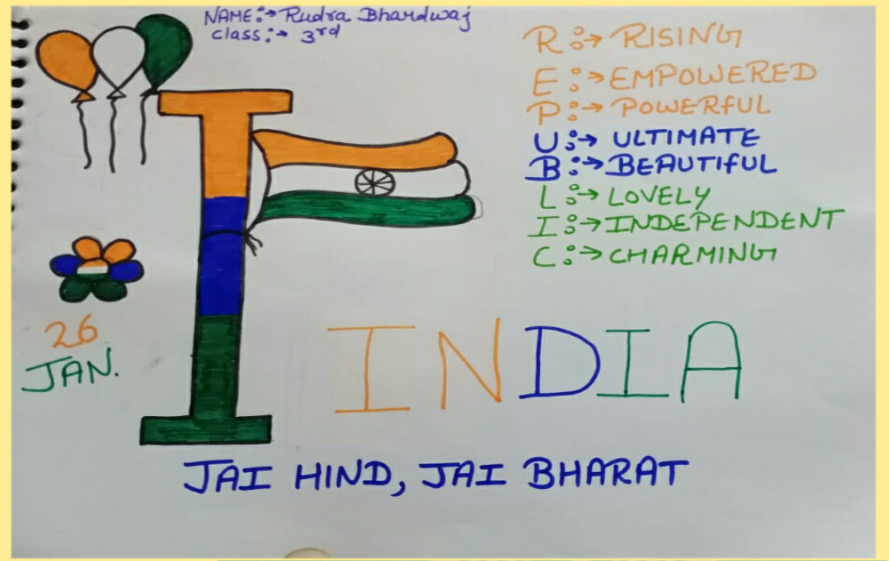 NAME:→ Rudra Bhardwaj
Class:→ 3rd
R:→ RISING
E:→ EMPOWERED
P:→ POWERFUL
U:→ ULTIMATE
B:→ BEAUTIFUL
L:→ LOVELY
I:→ INDEPENDENT
C:→ CHARMING
I
26
JAN.
INDIA
JAI HIND, JAI BHARAT